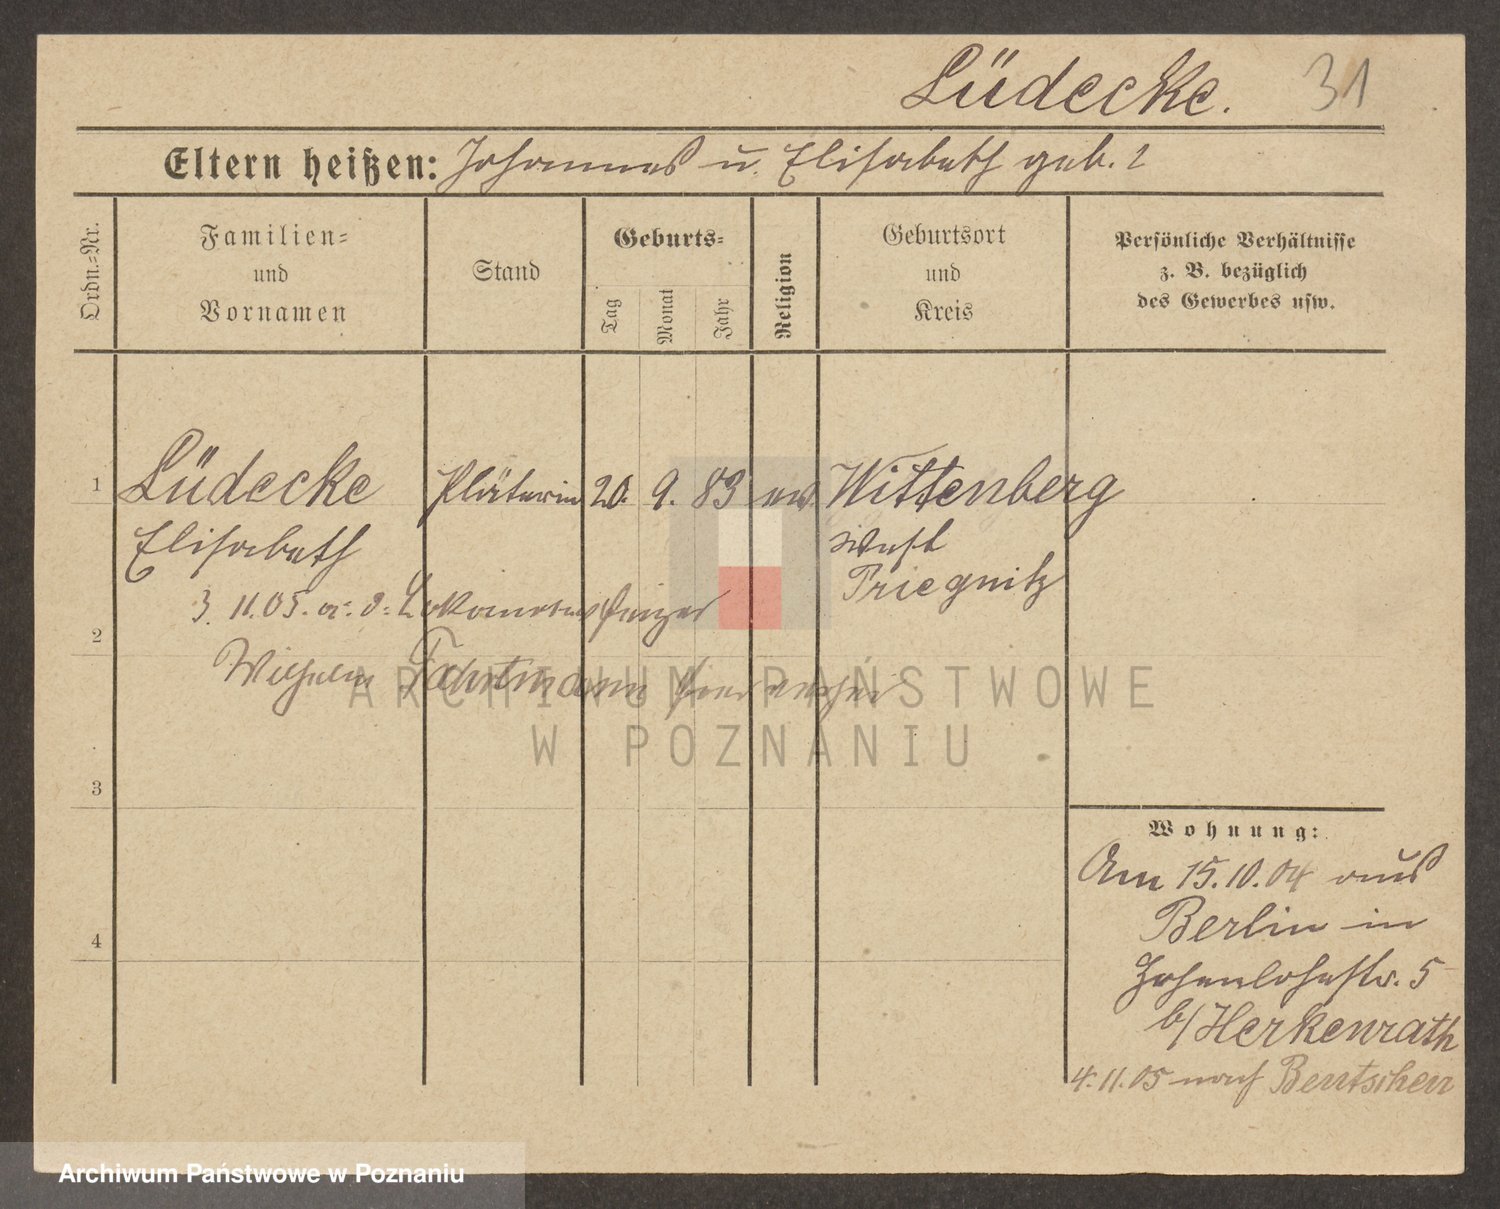 Lüdecke. 31
Eltern heißen: Johannes u. Elisabeth geb. ?
Ordn.=Nr.
Familien=
und
Vornamen
Stand
Geburts=
Tag
Monat
Jahr
Religion
Geburtsort
und
Kreis
Persönliche Verhältnisse
z. B. bezüglich
des Gewerbes usw.
1 Lüdecke Plätterin 20. 9. 83 ev. Wittenberg
Elisabeth West
Priegnitz
3. 11. 05. a. d. Lokomotivheizer
2
Wilhelm Fahrtmann hier verehei
ARCHIWUM PAŃSTWOWE
W POZNANIU
3
Wohnung:
Am 15.10.04 aus
Berlin in
4
Hohenlohestr. 5
b/ Herkenrath
4.11.05 nach Bentschen
Archiwum Państwowe w Poznaniu